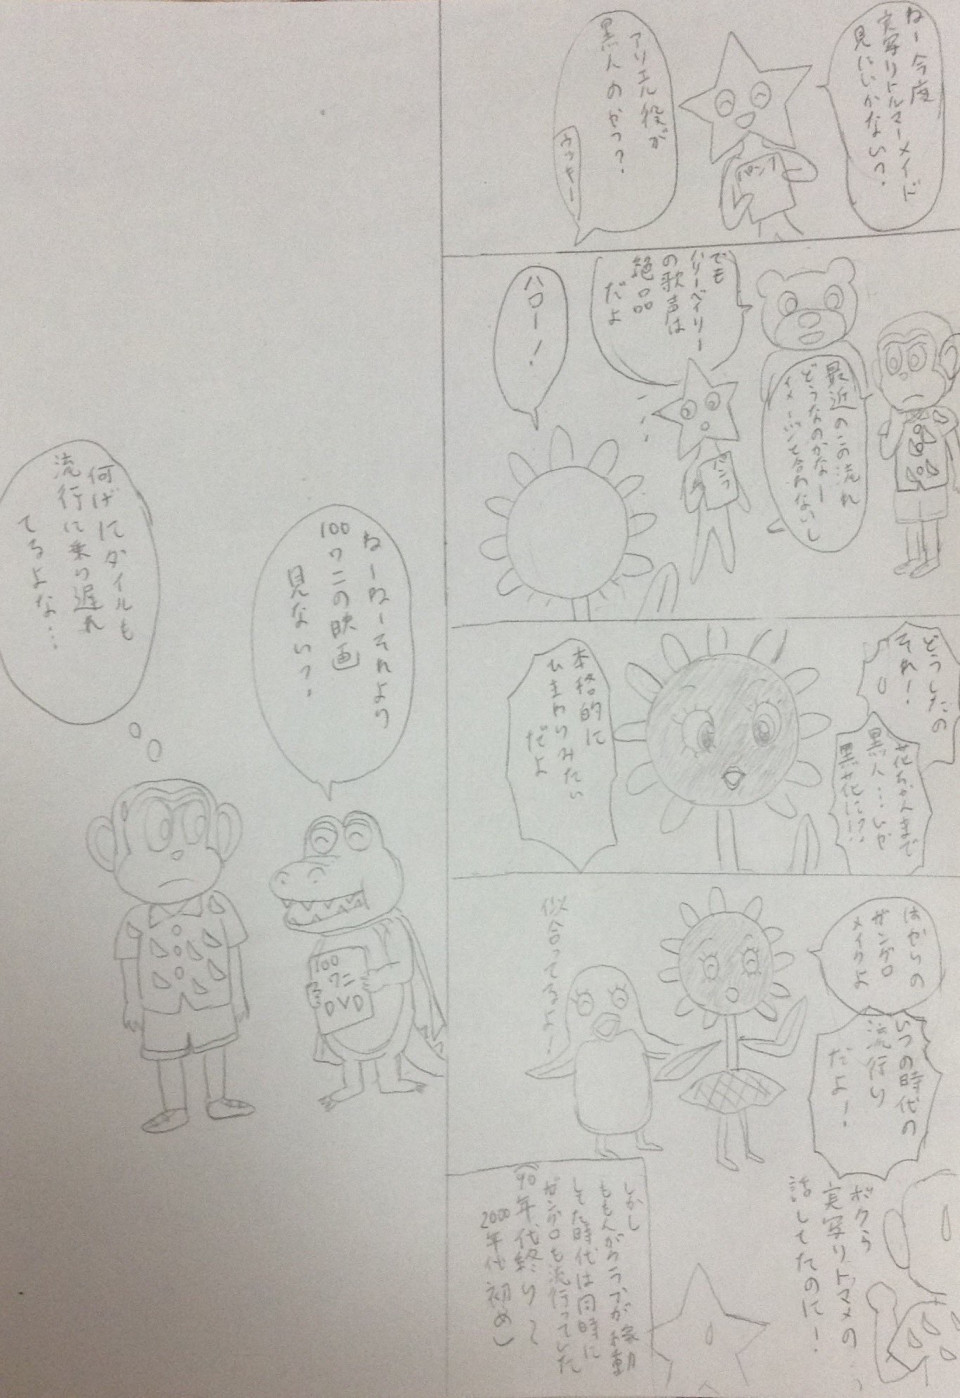 ねー今度
実写リトルマーメイド
見にいかないっ?
パンフ
アリエル役が
黒人のかっ?
ウッキー
最近のこの流れ
どうなのかなー
イメージと合わないし
でも
ハリーベイリー
の歌声は
絶品
だよ
パンフ
ハロー!
どうしたの
それ!
花ちゃんまで
黒人…いや
黒花に!?
本格的に
ひまわりみたい
だよ
はやりの
ガングロ
メイクよ
いつの時代の
流行り
だよ!
似合ってるよー
ボクら
実写リトマメの
話してたのに!
しかし
ももんがクラブが稼動
してた時代は同時に
ガングロも流行っていた
(90年代終り〜
2000年代初め)
ねーねーそれより
100ワニの映画
見ないっ?
100
ワニ
DVD
何げにダイルも
流行に乗り遅れ
てるよな…